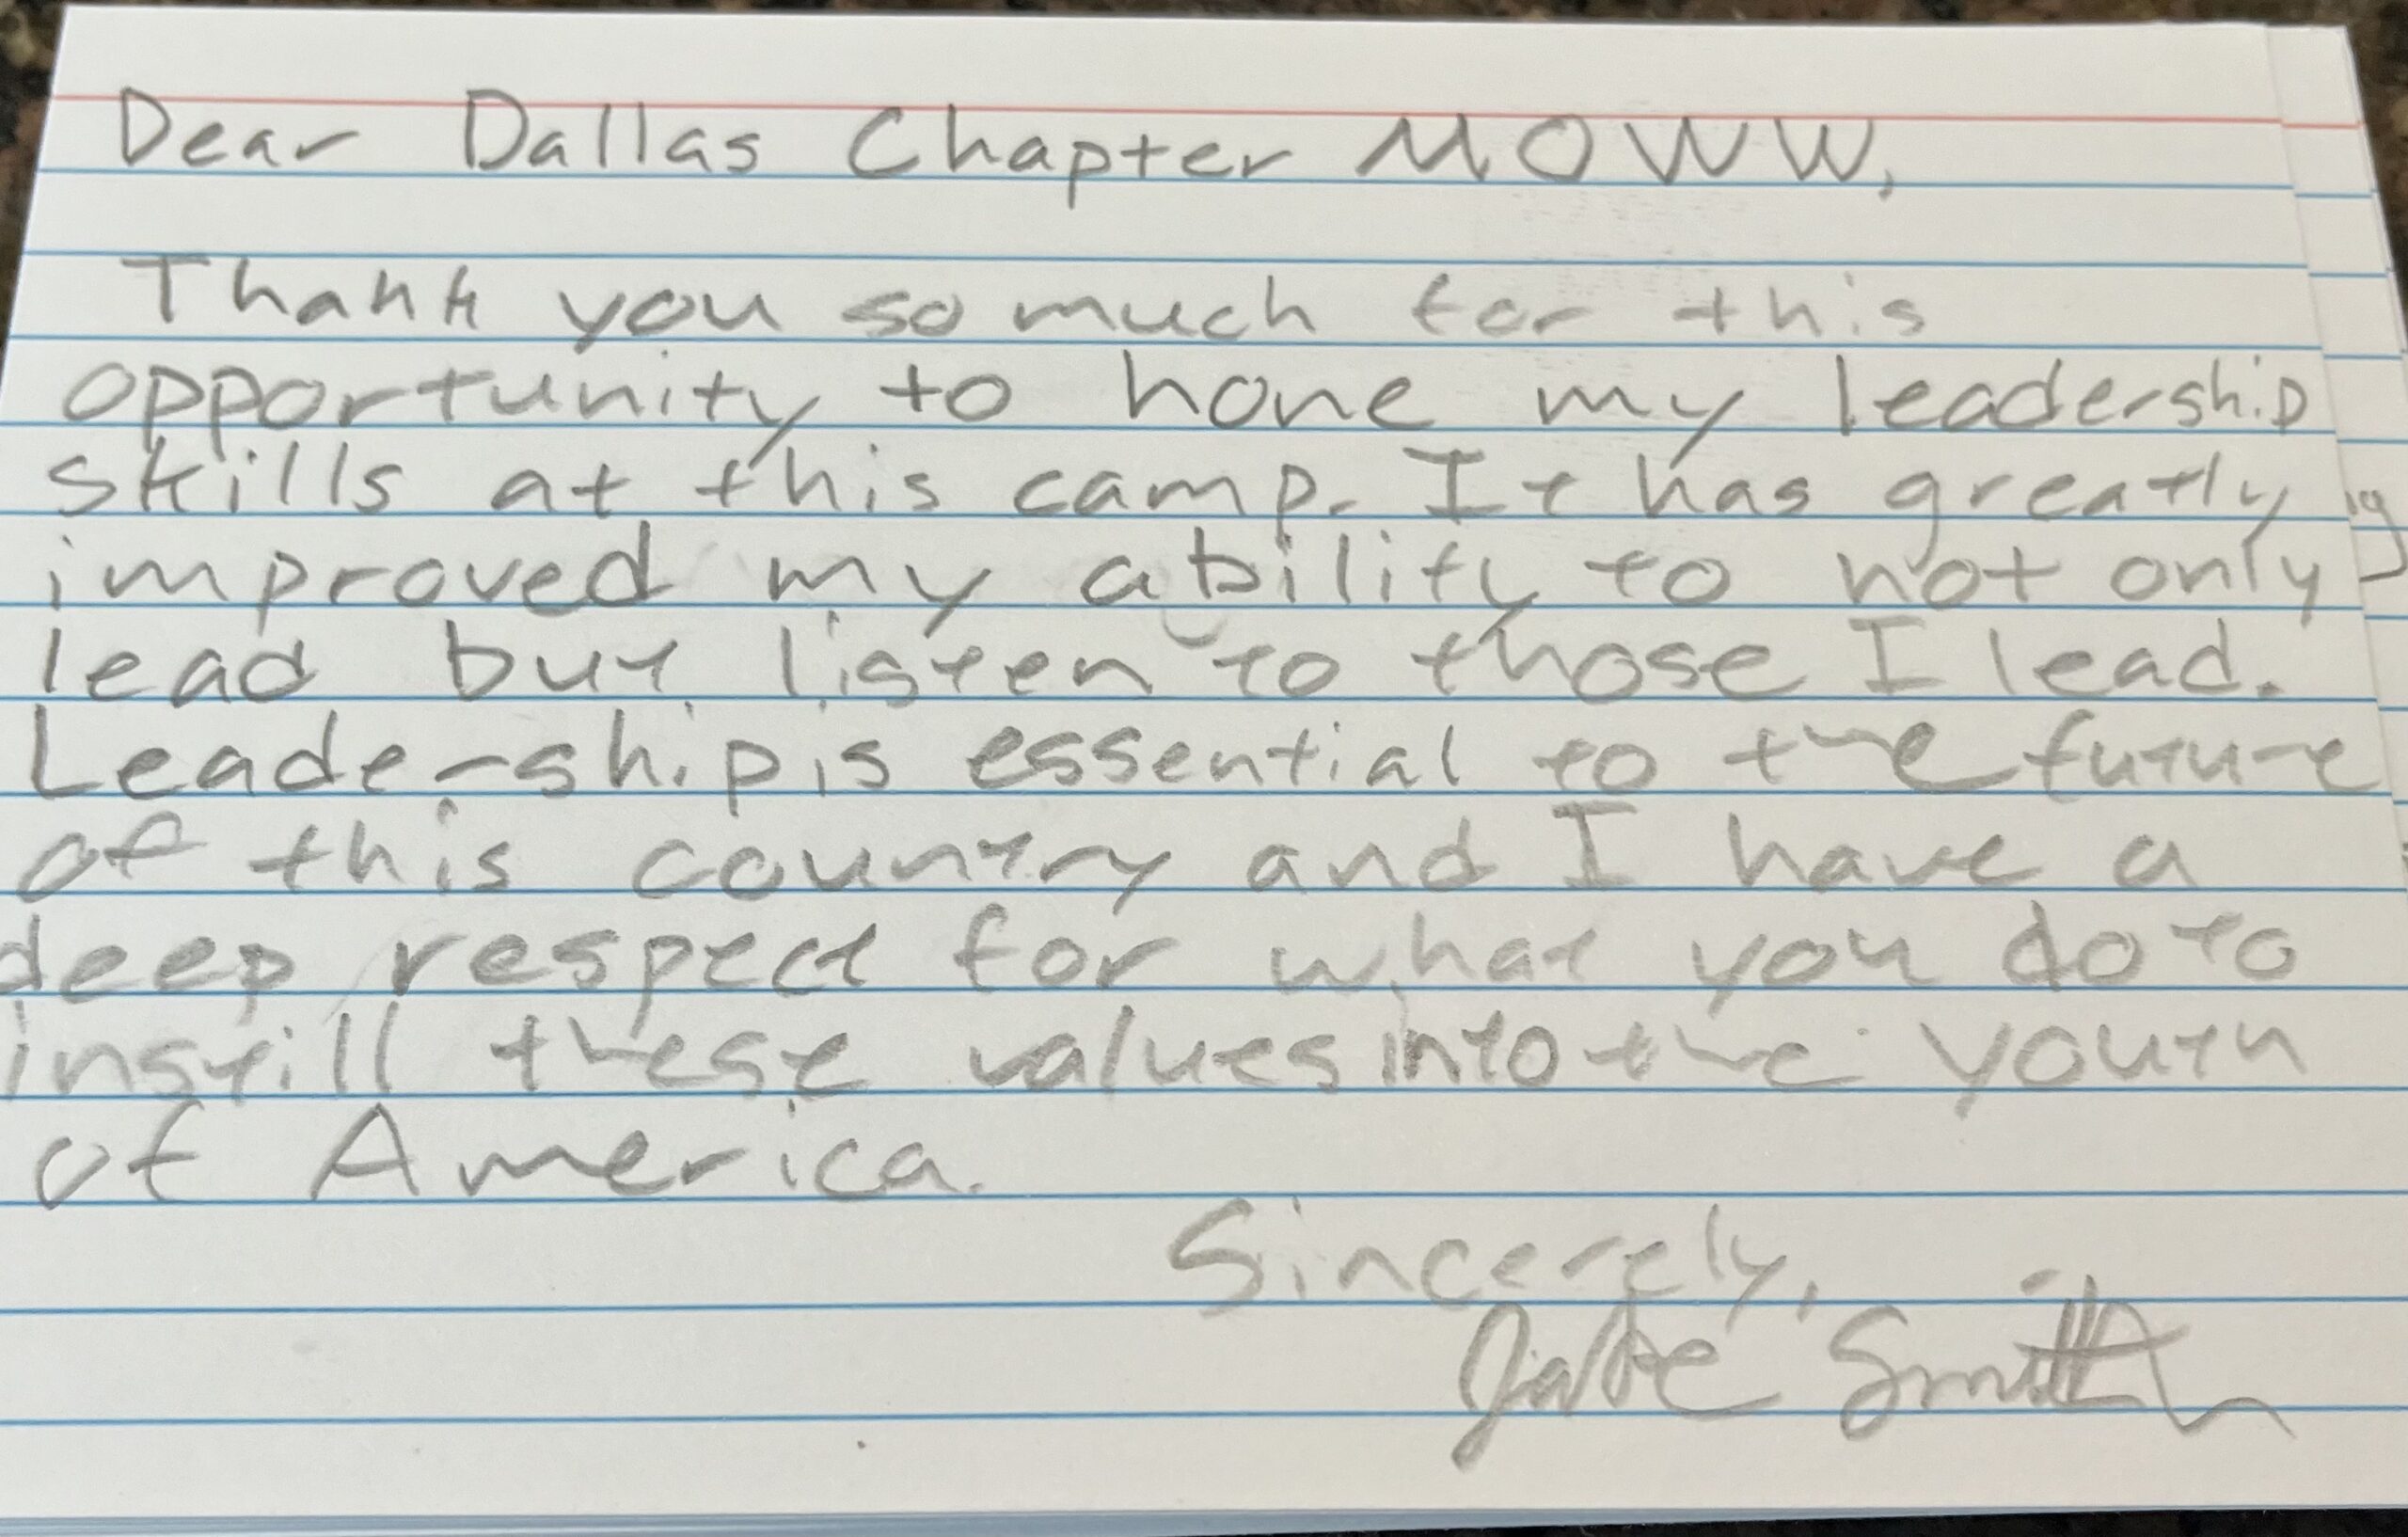 Dear Dallas Chapter MOWW,
Thank you so much for this
opportunity to hone my leadership
skills at this camp. It has greatly
improved my ability to not only
lead but listen to those I lead.
Leadership is essential to the future
of this country and I have a
deep respect for what you do to
instill these values into the youth
of America.
Sincerely,
Jake Smith